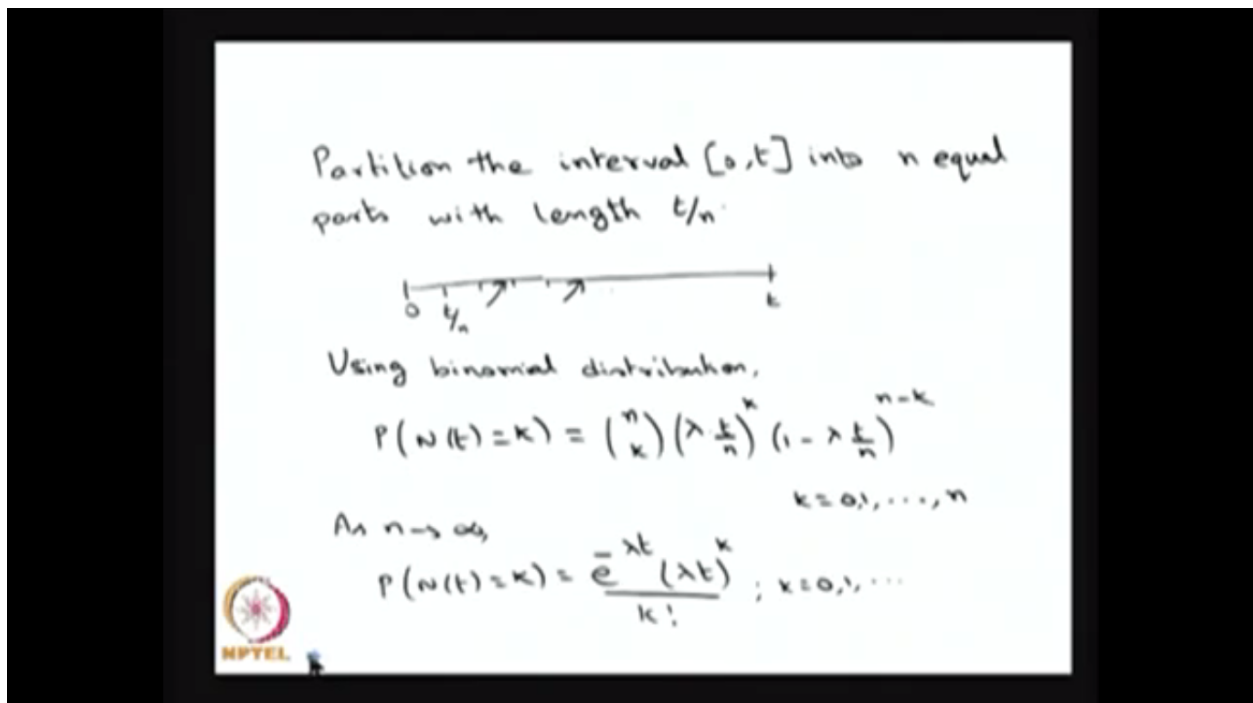 Partition the interval [0,t] into n equal
parts with length t/n.
0 t/n t
Using binomial distribution,
P(N(t)=k) = (n k) (λ t/n)^k (1 - λ t/n)^{n-k}
k = 0,1, ..., n
As n → ∞,
P(N(t)=k) = e^{-λt} (λt)^k / k! ; k=0,1, ...
NPTEL